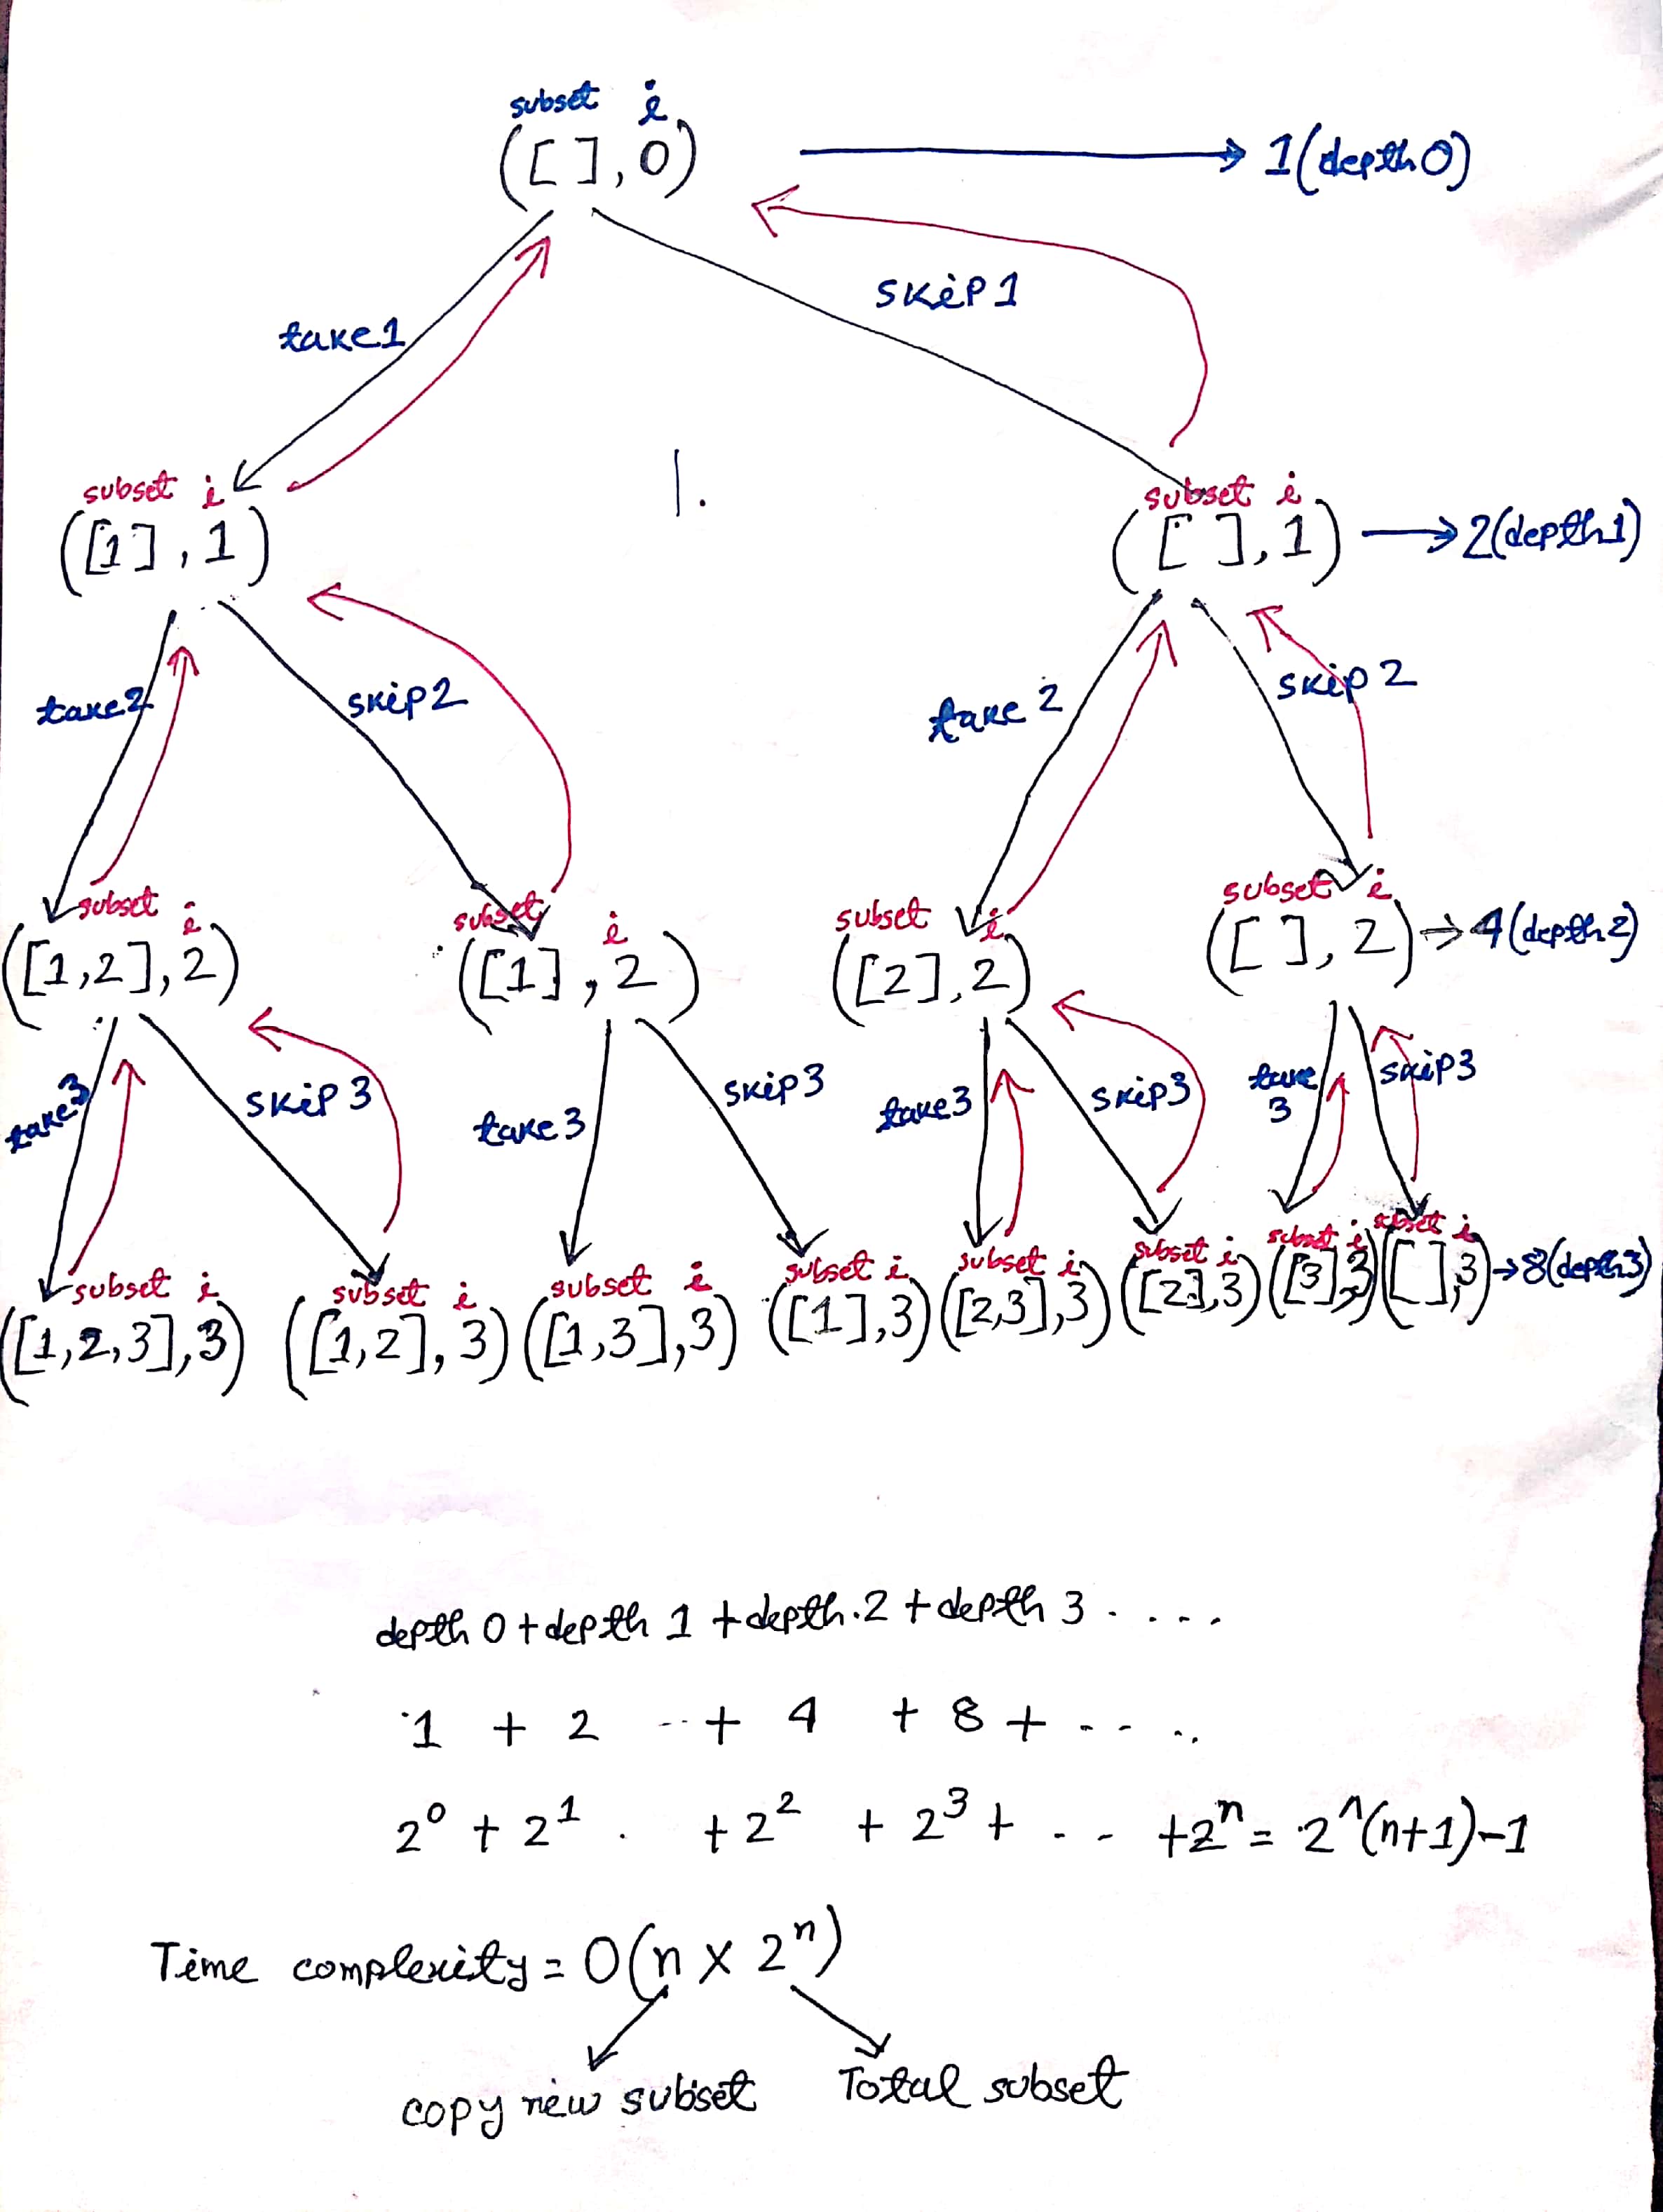 subset i
([ ], 0) → 1(depth 0)
take1 skip 1
subset i subset i
([1], 1) ([ ], 1) → 2(depth1)
take2 skip2 take 2 skip 2
subset i subset i subset i subset i
([1,2], 2) ([1], 2) ([2], 2) ([ ], 2) → 4(depth 2)
take3 skip 3 take 3 skip3 take3 skip3 take 3 skip3
subset i subset i subset i subset i subset i subset i subset i subset i
([1,2,3],3) ([1,2], 3) ([1,3],3) ([1],3) ([2,3],3) ([2],3) ([3],3) ([ ],3) → 8(depth3)
depth 0 + depth 1 + depth 2 + depth 3 . . . .
1 + 2 + 4 + 8 + - - - .
2⁰ + 2¹ + 2² + 2³ + - - +2ⁿ = 2^(n+1)-1
Time complexity = O(n x 2ⁿ)
copy new subset Total subset